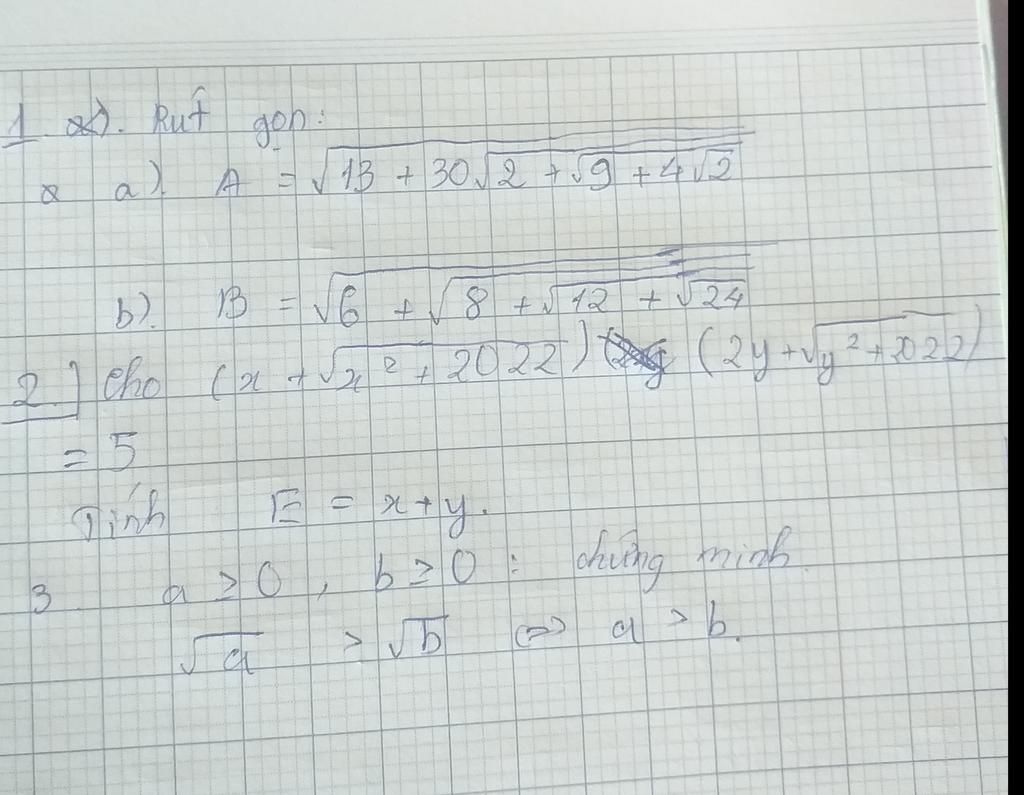 1. a). Rút gọn:
a). A = √(13 + 30√(2 + √(9 + 4√2)))
b). B = √(6 + √(8 + √(12 + √24)))
2.] Cho (x + √(x² + 2022)) (2y + √(y² + 2022))
= 5
Tính E = x + y.
3 a ≥ 0, b ≥ 0 : chứng minh.
√a > √b ⇔ a > b.